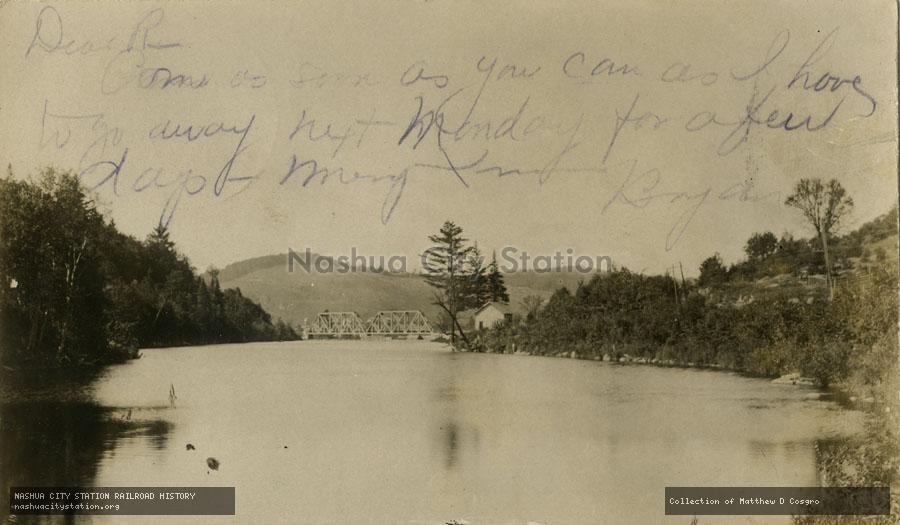 Dear R
Come as soon as you can as I have
to go away next Monday for a few
days
Nashua City Station
NASHUA CITY STATION RAILROAD HISTORY
nashuacitystation.org
Collection of Matthew D Cosgro